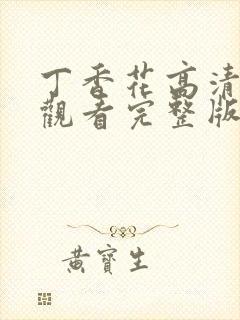 丁香花高清
觀看完整版
黃寶生